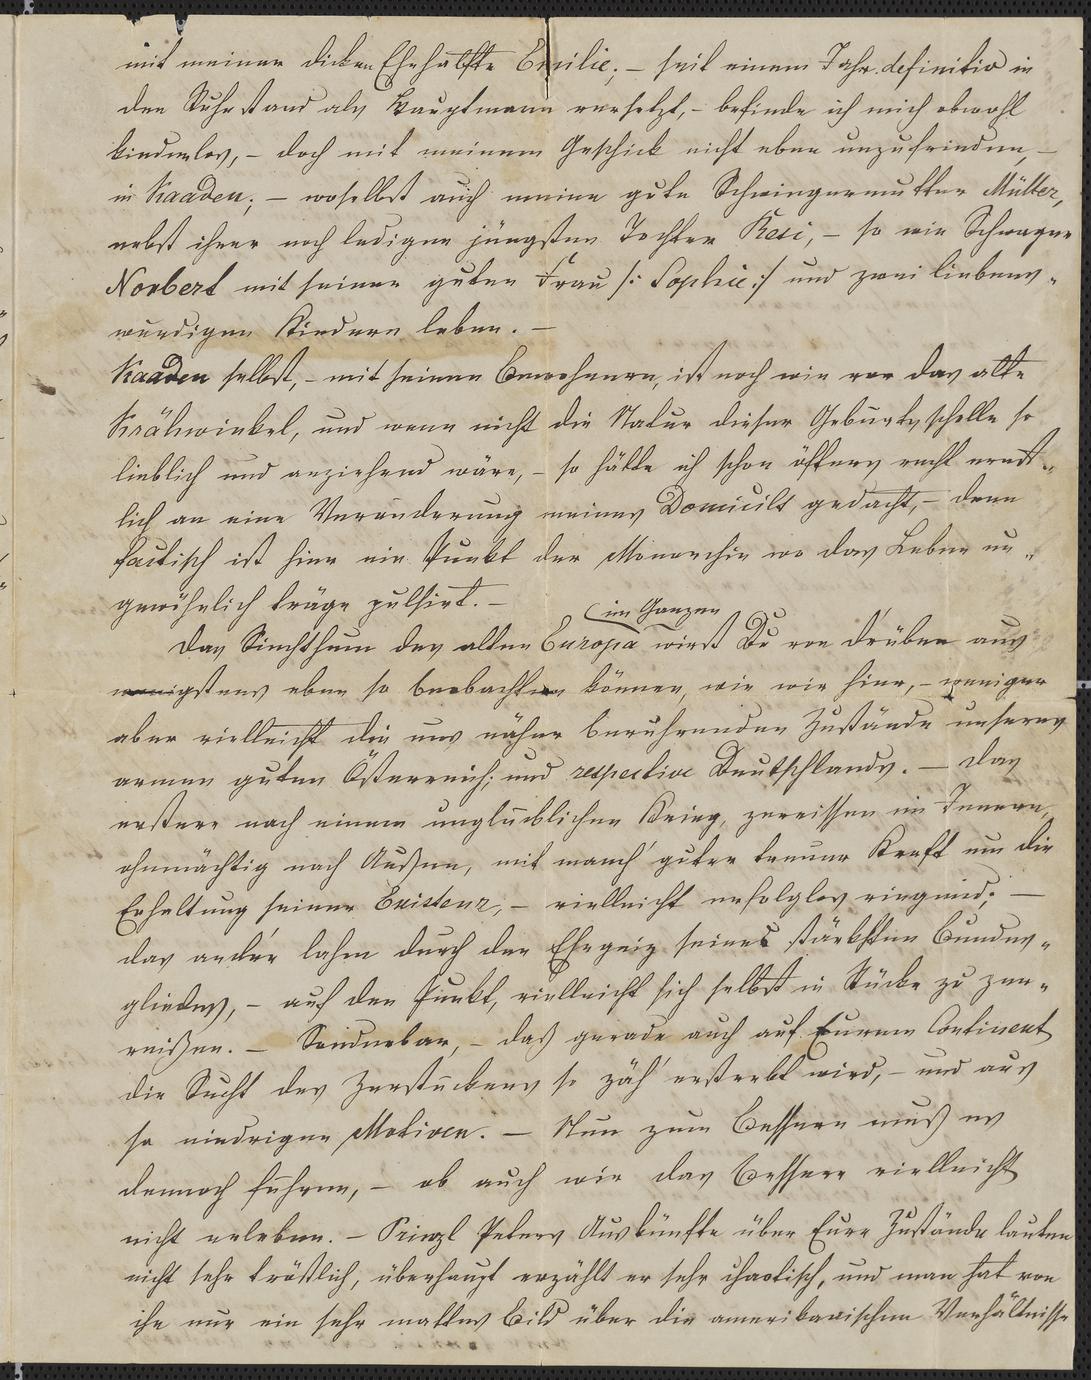 mit meiner dicken Ehehälfte Emilie; – seit einem Jahr definitiv in
den Ruhestand als Hauptmann versetzt, – befinde ich mich obwohl
kinderlos, – doch mit meinem Geschick nicht eben unzufrieden, –
in Kaaden; – woselbst auch meine gute Schwiegermutter Müller,
nebst ihrer noch ledigen jüngsten Tochter Resi, – so wie Schwager
Norbert mit seiner guten Frau /: Sophie :/ und zwei liebens-
würdigen Kindern leben. –
Kaaden selbst, – mit seinen Bewohnern, ist noch wie vor das alte
Krähwinkel, und wenn nicht die Natur dieser Geburtsschelle so
lieblich und anziehend wäre, – so hätte ich schon öfters recht ernst-
lich an eine Veränderung meines Domicils gedacht, – denn
factisch ist hier ein Punkt der Monarchie wo das Leben un-
gewöhnlich träge pulsirt. –
im Ganzen
Das Siechthum des alten Europa wirst Du von drüben aus
wenigstens eben so beobachten können, wie wir hier, – weniger
aber vielleicht die uns näher berührenden Zustände unseres
armen guten Österreich; und respective Deutschlands. – Das
erstere nach einem unglücklichen Krieg, zerrissen im Innern,
ohnmächtig nach Außen, mit manch' guter treuer Kraft um die
Erhaltung seiner Existenz, – vielleicht erfolglos ringend; –
das and're lahm durch den Ehrgeiz seines stärksten Bundes-
gliedes, – auf den Punkt, vielleicht sich selbst in Stücke zu zer-
reißen. – Sonderbar, – daß gerade auch auf Eurem Continent
die Sucht des Zerstückens so zäh' erstrebt wird, – und aus
so niedrigen Motiven. – Nun zum Bessern muß es
dennoch führen, – ob auch wir das Bessere vielleicht
nicht erleben. – Prinzl Peters Auskünfte über Eure Zustände lauten
nicht sehr tröstlich, überhaupt erzählt er sehr chaotisch, und man hat von
ihm nur ein sehr mattes Bild über die amerikanischen Verhältnisse